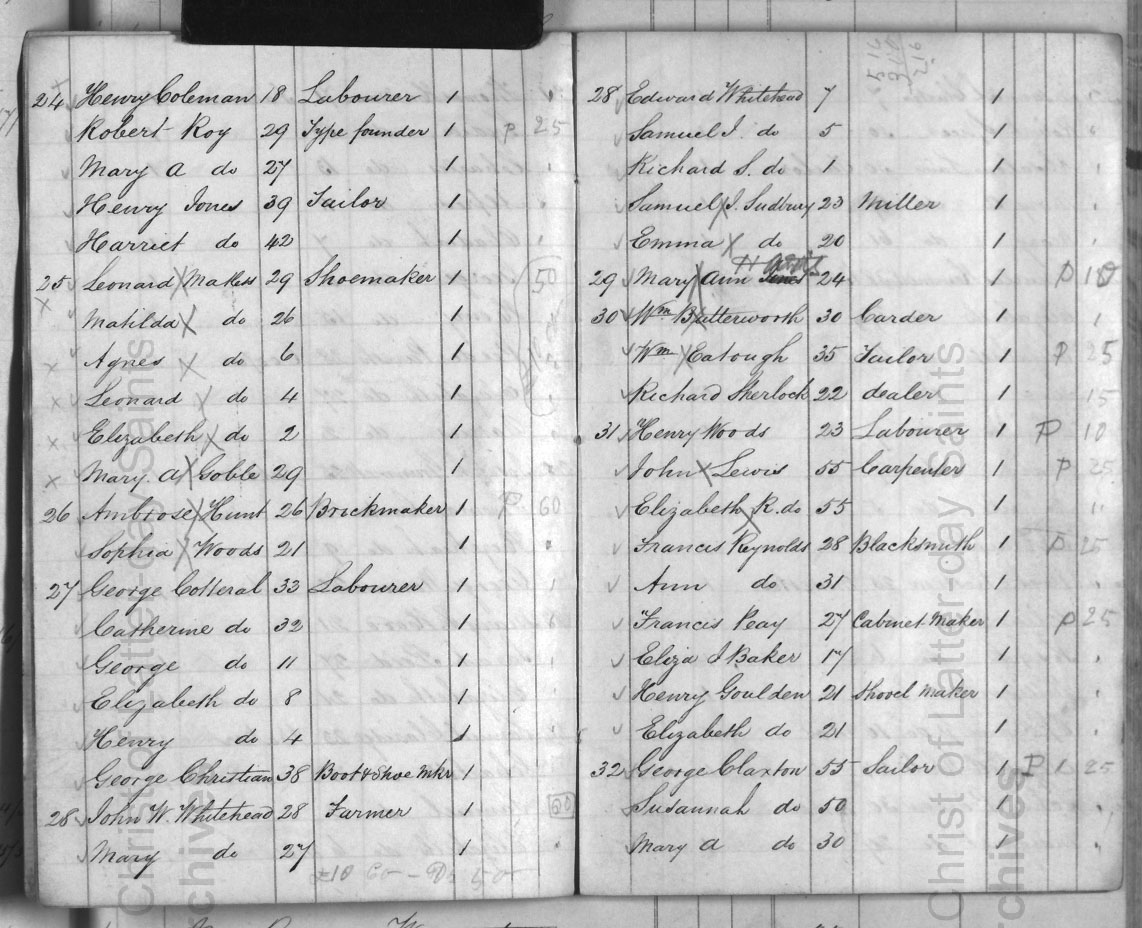 24 Henry Coleman 18 Labourer 1
Robert Roy 29 Type founder 1 P 25
Mary A do 27 1
Henry Jones 39 Tailor 1
Harriet do 42 1
25 Leonard Makess 29 Shoemaker 1 50
Matilda do 26 1
Agnes do 6 1
Leonard do 4 1
Elizabeth do 2 1
Mary. A Goble 29 1
26 Ambrose Hunt 26 Brickmaker 1 P 60
Sophia Woods 21 1
27 George Cotteral 33 Labourer 1
Catherine do 32 1
George do 11 1
Elizabeth do 8 1
Henry do 4 1
George Christian 38 Boot & Shoe Mkr 1
28 John W. Whitehead 28 Farmer 1
Mary do 27 1
28 Edward Whitehead 7 1
Samuel J. do 5 1
Richard S. do 1 1
Samuel J. Sudbury 23 Miller 1
Emma do 20 1
29 Mary Ann 24 1 P 10
30 Wm Butterworth 30 Carder 1
Wm Eatough 35 Tailor 1 P 25
Richard Sherlock 22 dealer 1 15
31 Henry Woods 23 Labourer 1 P 10
John Lewis 55 Carpenter 1 P 25
Elizabeth R. do 55 1
Francis Reynolds 28 Blacksmith 1 P 25
Ann do 31 1
Francis Peay 27 Cabinet Maker 1 P 25
Eliza J Baker 17 1
Henry Goulden 21 Shovel Maker 1
Elizabeth do 21 1
32 George Claxton 55 Sailor 1 P 1 25
Susannah do 50 1
Mary A do 30 1
Christ of Latter-day Saints
Archives
Christ of Latter-day Saints